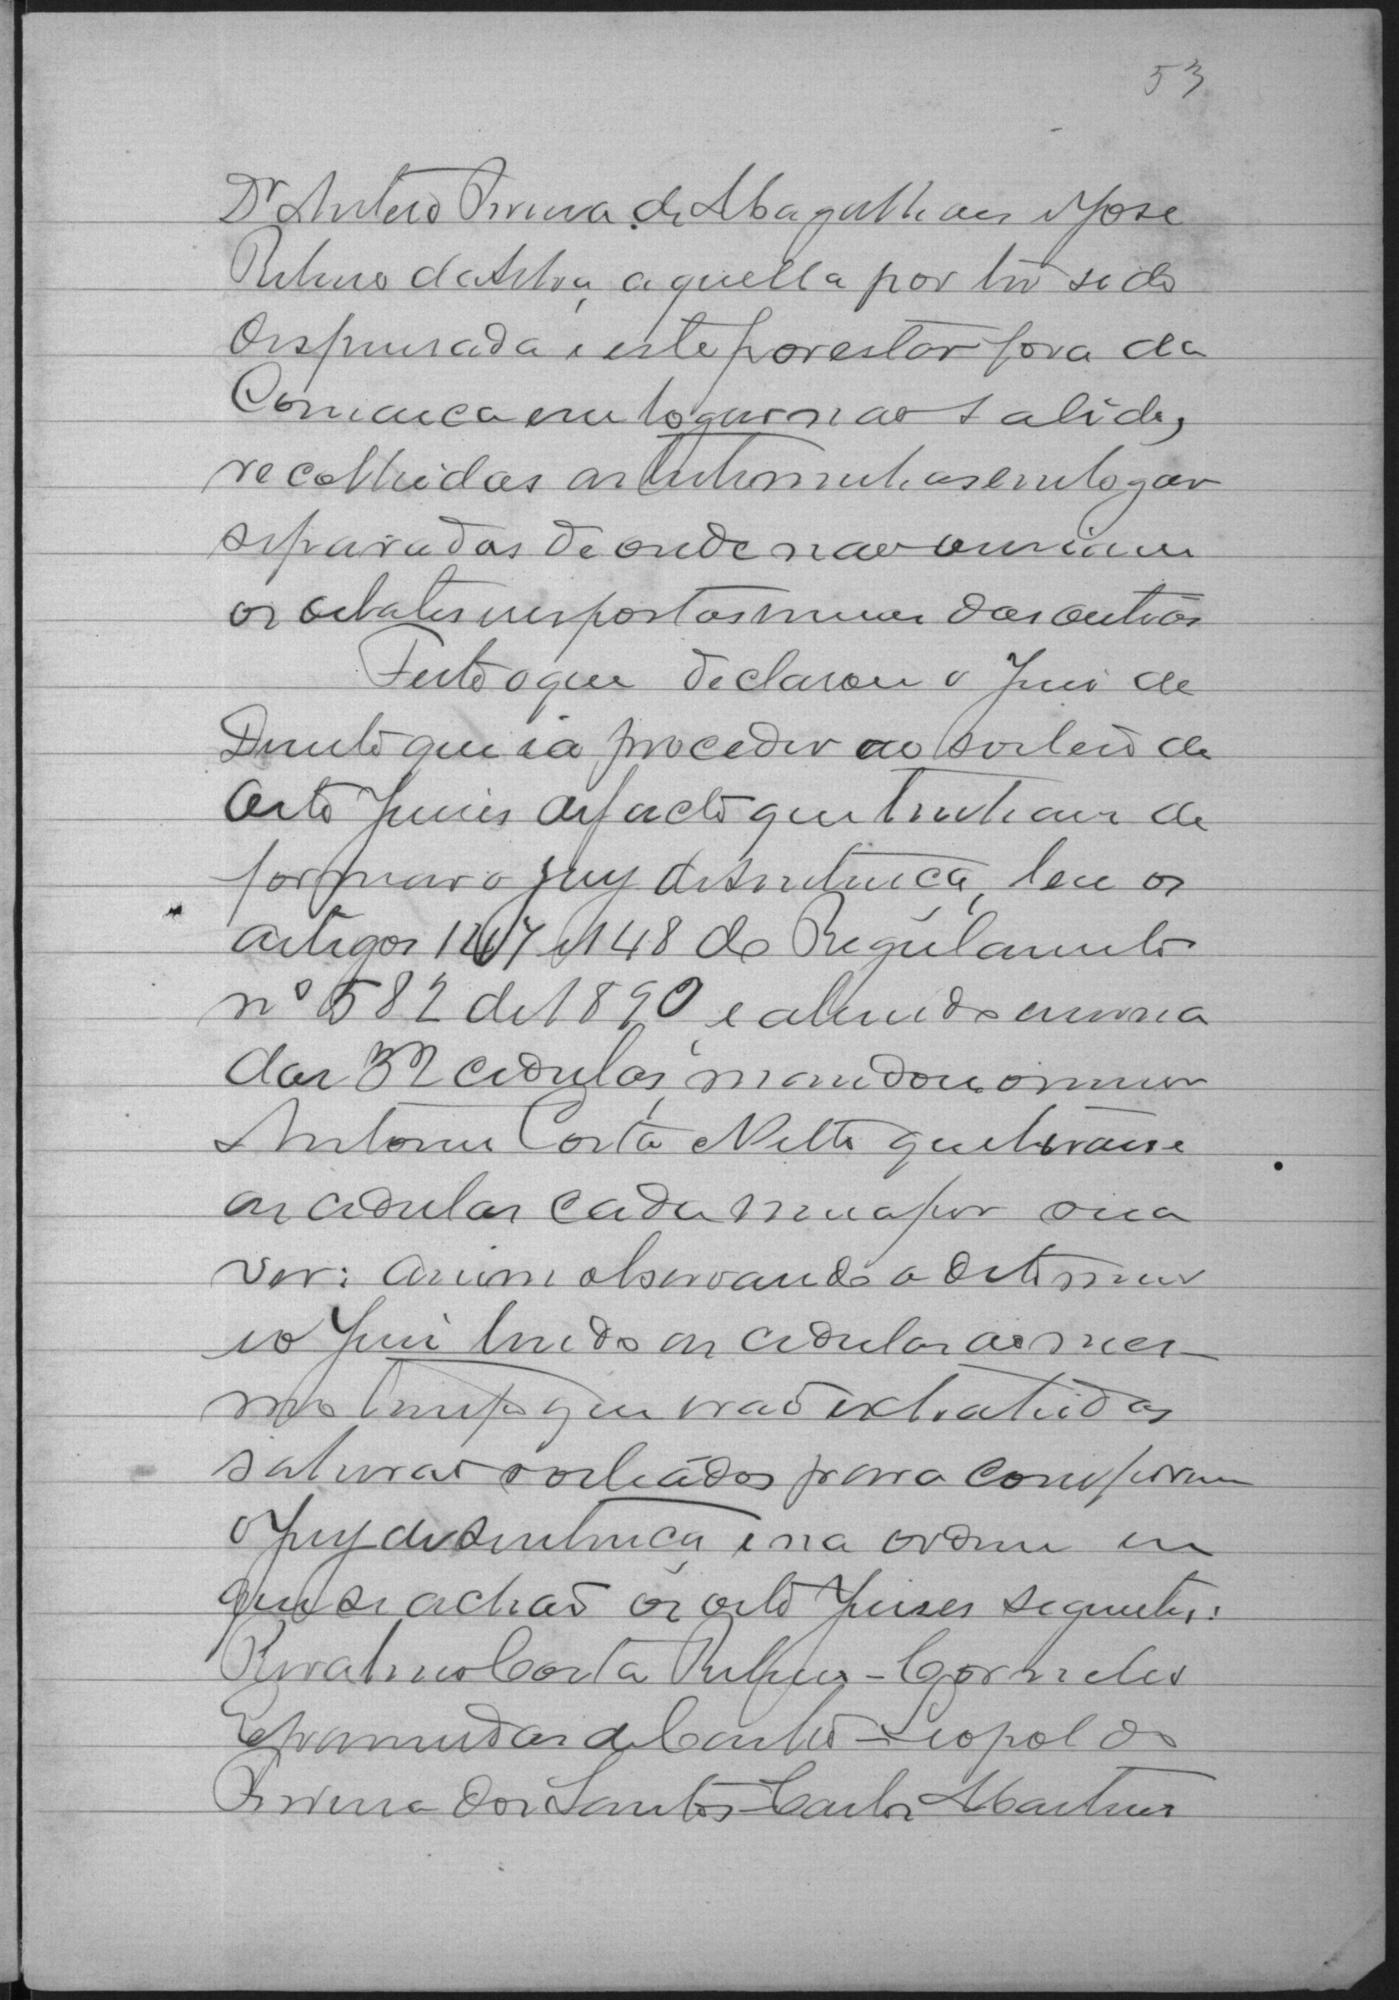 53
Dr Antero Pereira de Magalhães e José
Ribeiro da Silva, aquella por ter sido
dispensada e este por estar fora da
Comarca em logar não sabido,
recolhidas as testemunhas em logar
separadas de onde não ouvião
os debates e respostas umas das outras
Feito o que declarou o Juiz de
Direito que ia proceder ao sorteio de
oito Juizes de facto que tinham de
formar o jury de sentença, leu os
artigos 147 e 148 do Regulamento
nº 582 de 1890, e abrindo a urna
das 32 cedulas, mandou o menor
Antonio Costa Netto que tirasse
as cedulas cada uma por sua
vez: assim observando o dito menor
e o Juiz lendo as cedulas ao mes-
mo tempo que erão extrahidas
sahirão sorteados para comporem
o jury de sentença e na ordem em
que se achão os oito Juizes seguintes:
Costa - Cornelio
de Castro - Leopoldo
Pereira dos Santos - Carlos Martins